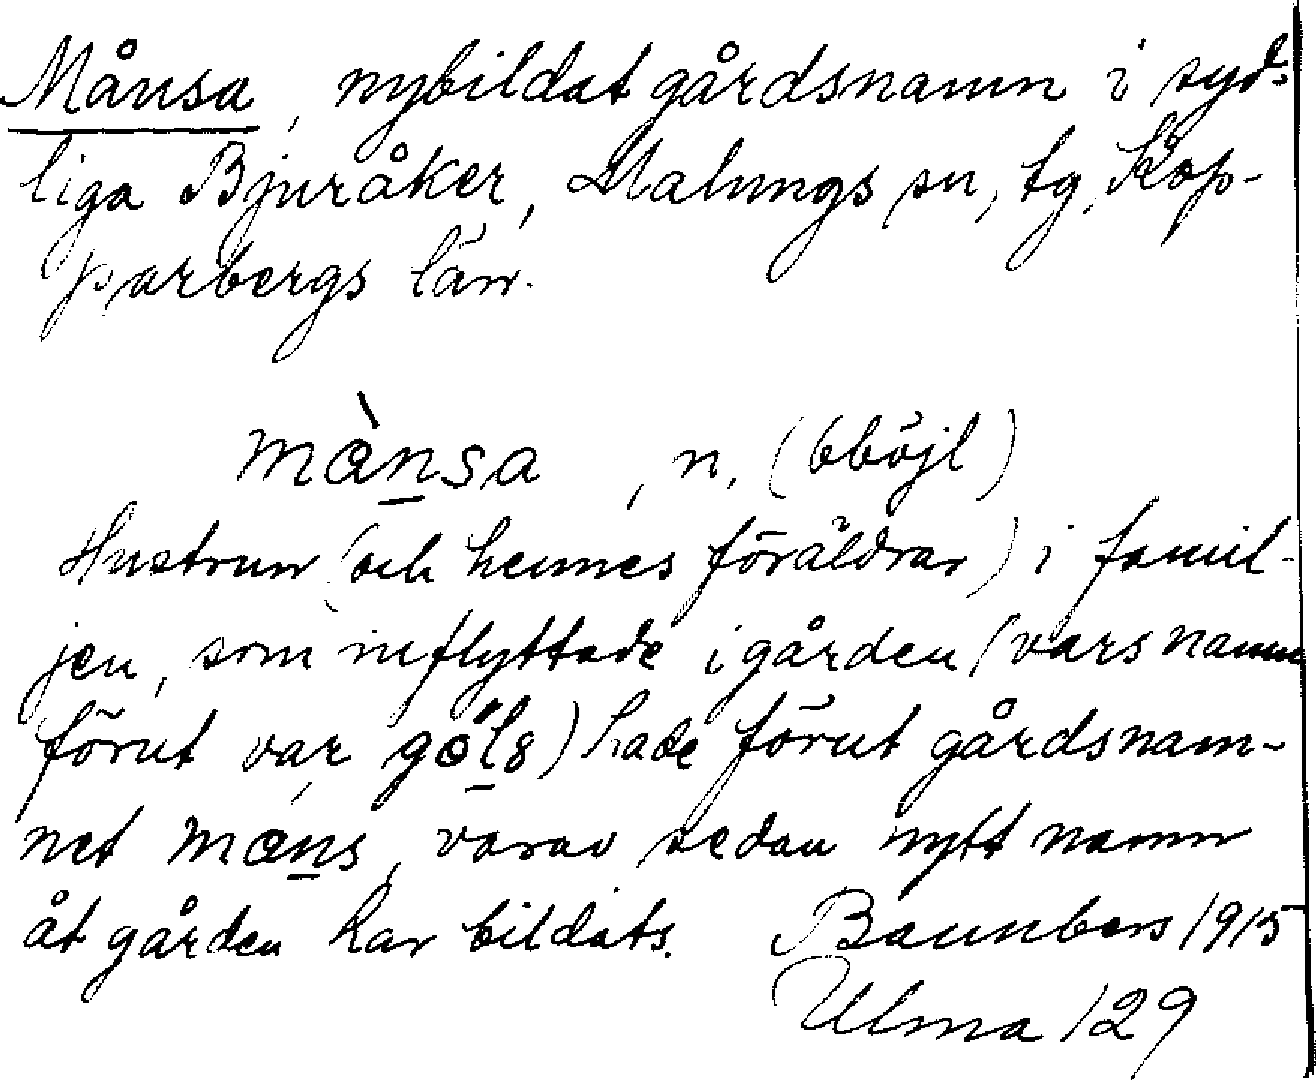 Månsa, nybildat gårdsnamn i syd-
liga Bjuråker, Malungs sn, tg, Kop-
parbergs län.
mànsa, n, (oböjl)
Hustrun (och hennes föräldrar) i famil-
jen, som inflyttade i gården (vars namn
förut var göls) hade förut gårdsnam-
net mans, varav sedan nytt namn
åt gården har bildats. 1915
Ulma 129